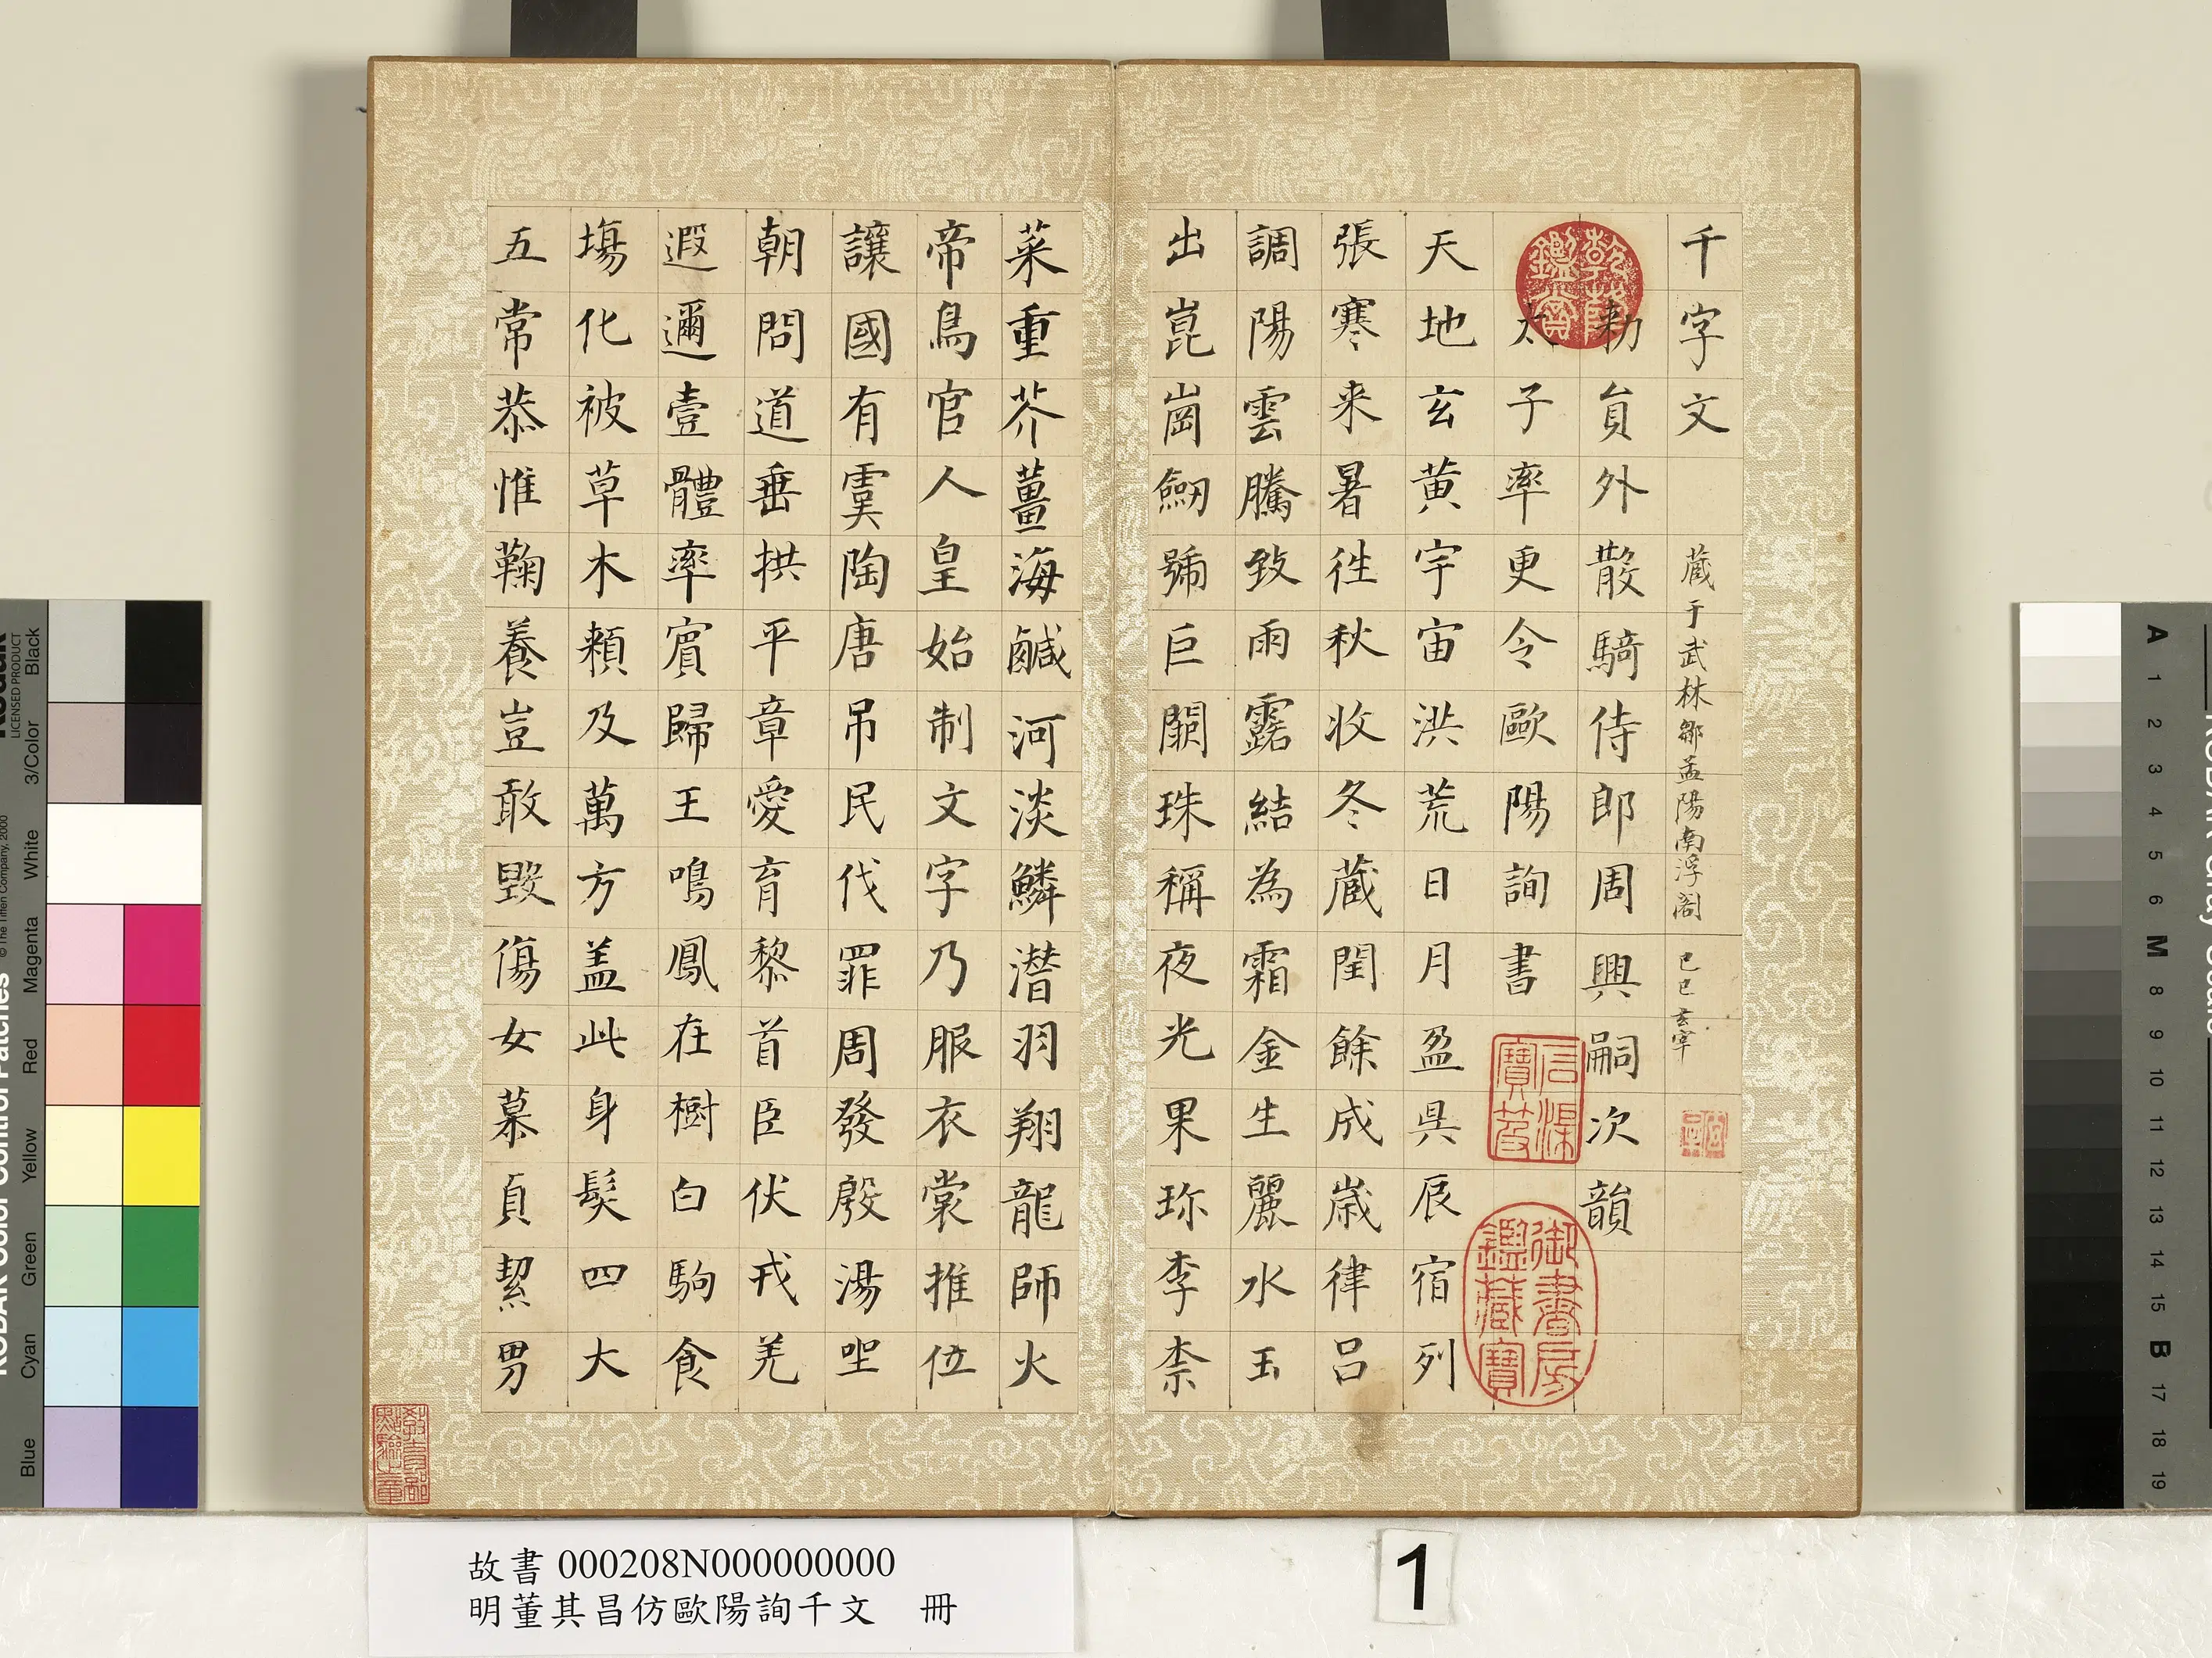 千字文 藏于武林鄒孟陽南浮阁 己巳玄宰
勑員外散騎侍郎周興嗣次韻
太子率更令歐陽詢書
天地玄黃宇宙洪荒日月盈昃辰宿列
張寒来暑往秋收冬蔵閏餘成歲律吕
調陽雲騰致雨露結為霜金生麗水玉
出崑崗劒號巨闕珠稱夜光果珎李柰
乾隆鑑賞
石渠寶笈
御書房鑑藏寶
菜重芥薑海鹹河淡鱗潛羽翔龍師火
帝鳥官人皇始制文字乃服衣裳推位
讓國有虞陶唐吊民伐罪周發殷湯坐
朝問道垂拱平章愛育黎首臣伏戎羌
遐邇壹體率賓歸王鳴鳳在樹白駒食
場化被草木賴及萬方盖此身髮四大
五常恭惟鞠養豈敢毀傷女慕貞絜男
教育部點驗之章
故書 000208N000000000
明董其昌仿歐陽詢千文 冊
1
KODAK Color Control Patches
© The Tiffen Company, 2000
Kodak
LICENSED PRODUCT
Blue
Cyan
Green
Yellow
Red
Magenta
White
3/Color
Black
A 1 2 3 4 5 6 M 8 9 10 11 12 13 14 15 B 17 18 19